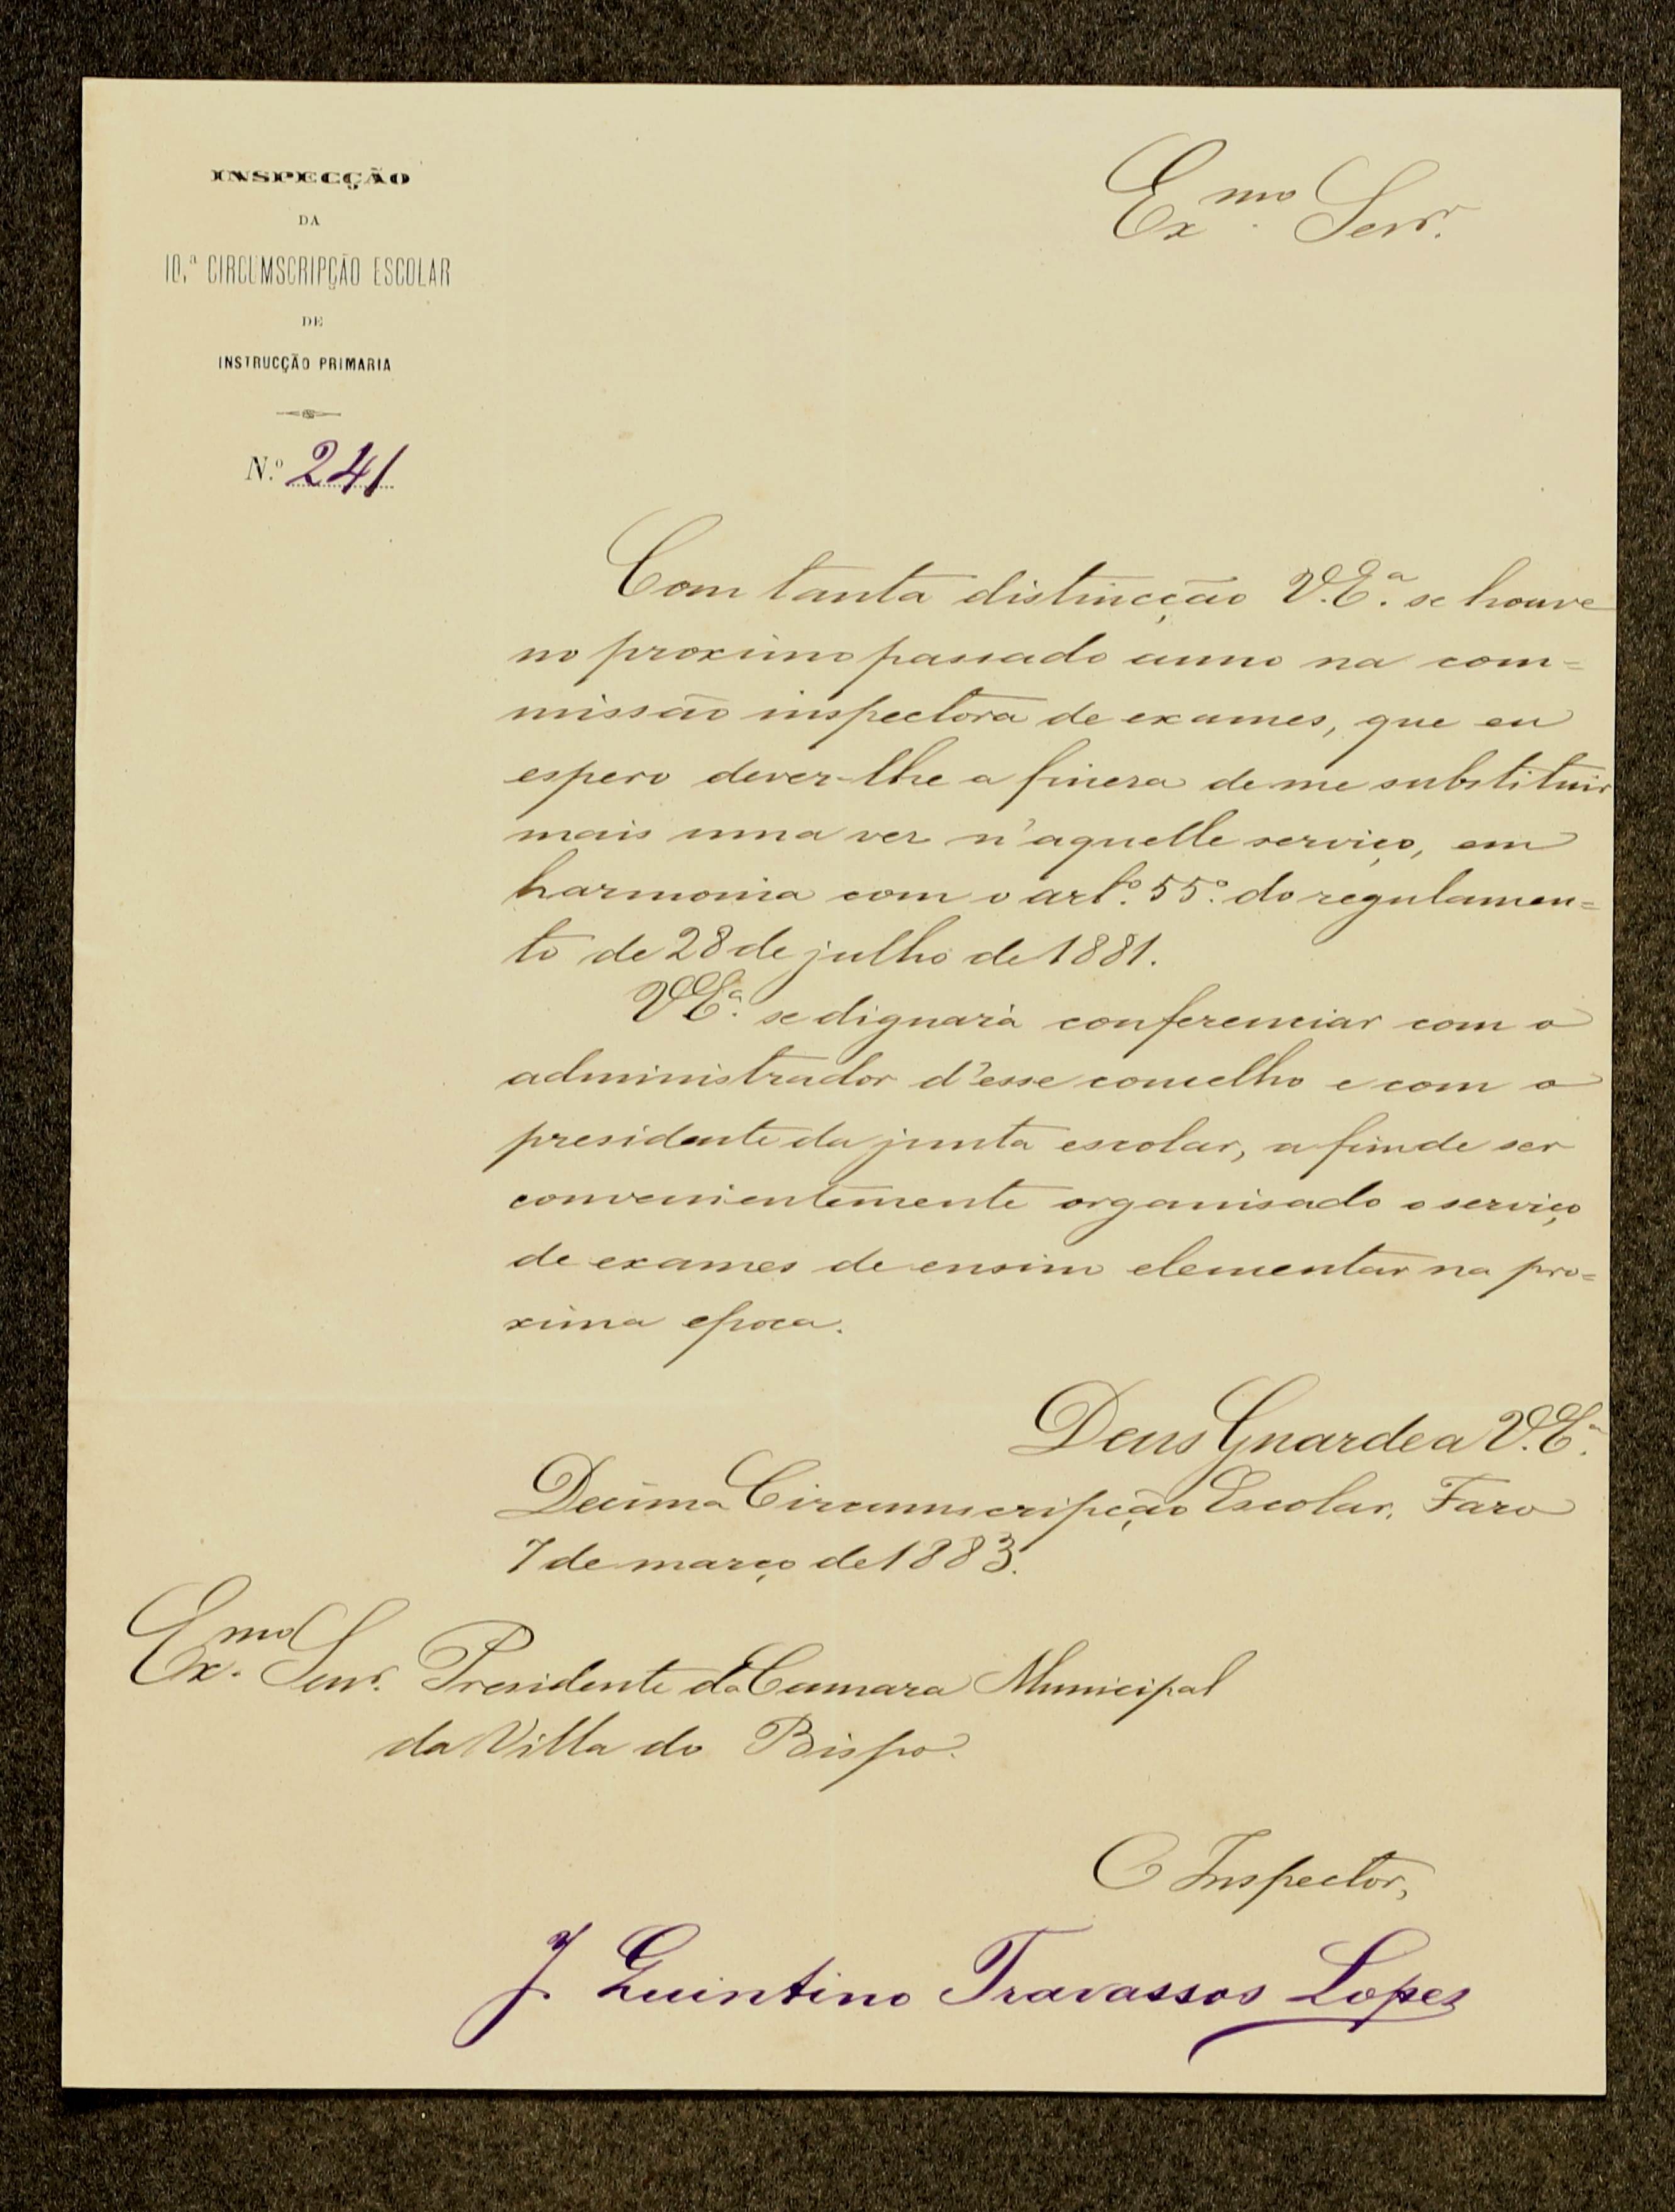 INSPECÇÃO
DA
10.ª CIRCUMSCRIPÇÃO ESCOLAR
DE
INSTRUCÇÃO PRIMARIA
N.º 241
Exmo. Senr.
Com tanta distincção V. Eª. se houve
no proximo passado anno na com=
missão inspectora de exames, que eu
espero dever-lhe a fineza de me substituir
mais uma vez n'aquelle serviço, em
harmonia com o artº. 55º. do regulamen=
to de 28 de julho de 1881.
V Eª. se dignará conferenciar com o
administrador d'esse concelho e com o
presidente da junta escolar, a fim de ser
convenientemente organisado o serviço
de exames de ensino elementar na pro=
xima epoca.
Deus Guarde a V. Eª.
Decima Circumscripção Escolar, Faro
7 de março de 1883.
Exmo. Senr. Presidente da Camara Municipal
da Villa do Bispo.
O Inspector,
J. Quintino Travassos Lopes